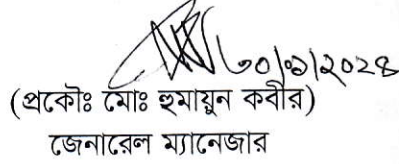 ৩০/০১/২০২৪
(প্রকৌঃ মোঃ হুমায়ুন কবীর)
জেনারেল ম্যানেজার